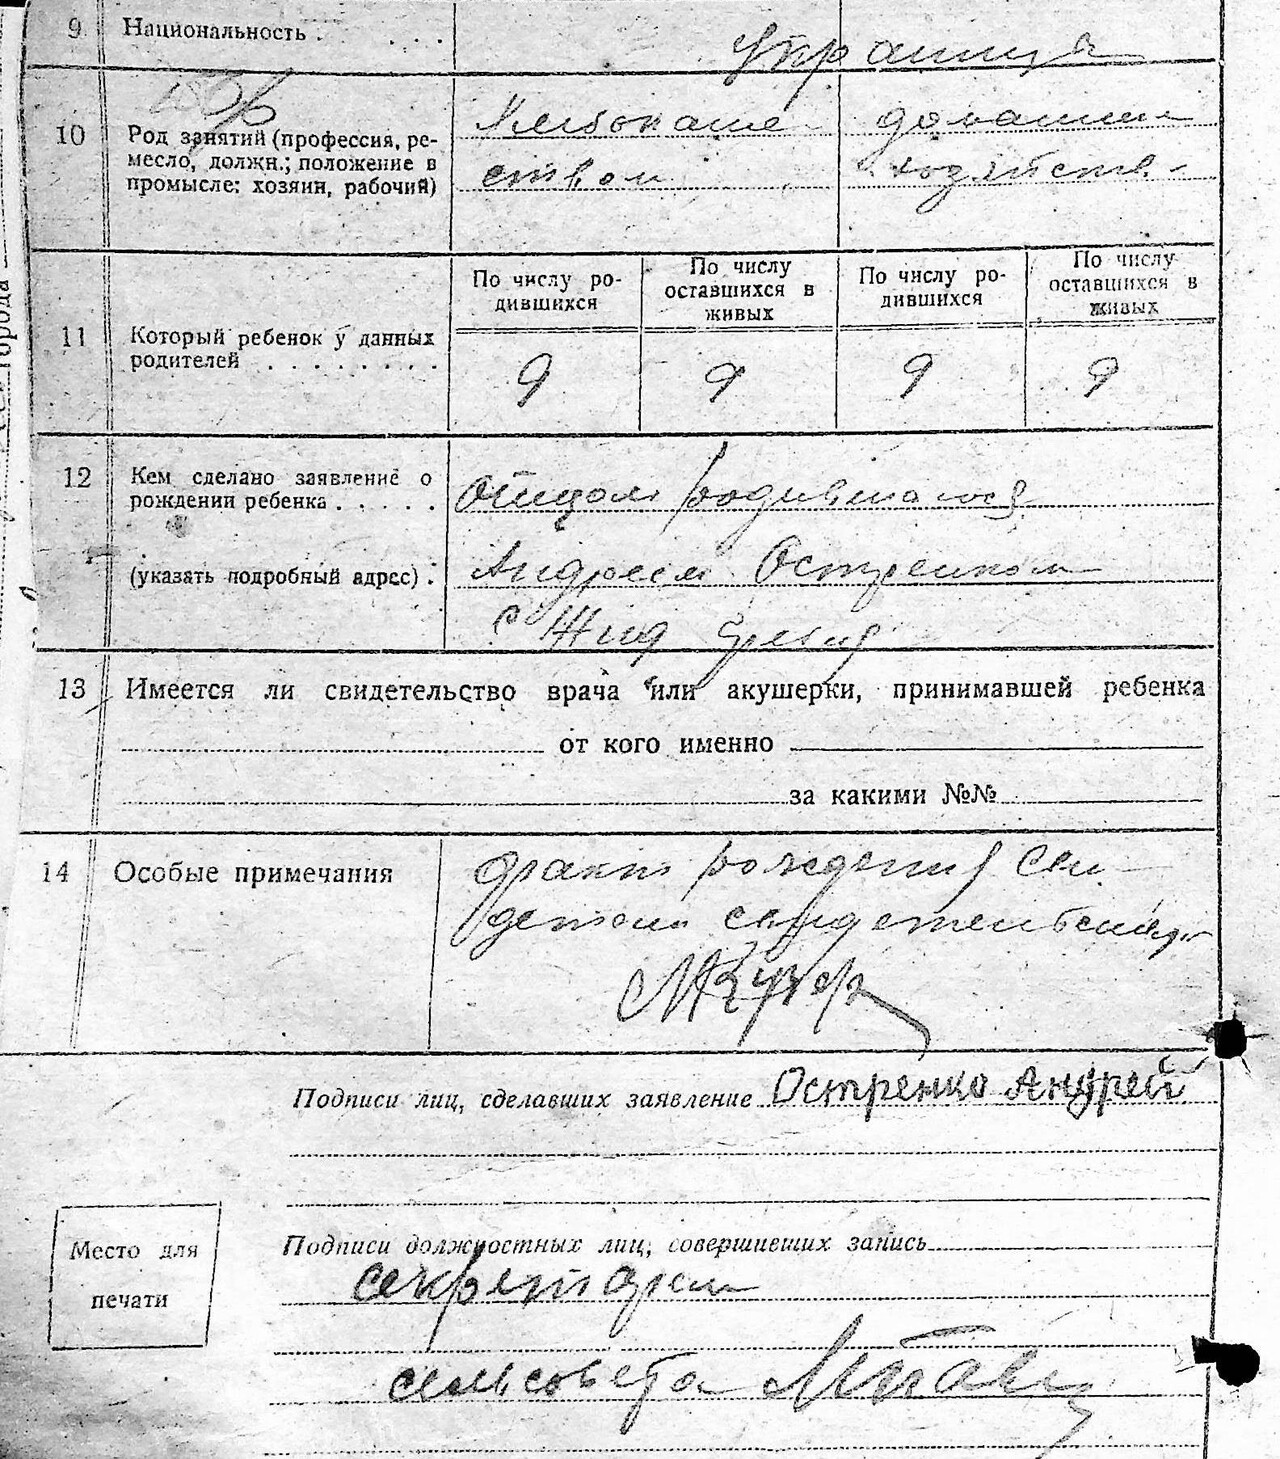 9 Национальность . . . .
Украинцы
10 Род занятий (профессия, ре-
месло, должн.; положение в
промысле: хозяин, рабочий)
Хлебопаше-
ством
домашнее
хозяйств
11 Который ребенок у данных
родителей . . . . . . . .
По числу ро-
дившихся
По числу
оставшихся в
живых
По числу ро-
дившихся
По числу
оставшихся в
живых
9 9 9 9
12 Кем сделано заявление о
рождении ребенка . . . . .
(указать подробный адрес) .
Отцом родившагося
Андреем Остренком
с
13 Имеется ли свидетельство врача или акушерки, принимавшей ребенка
от кого именно
за какими №№
14 Особые примечания
факт рождения
Подписи лиц, сделавших заявление Остренко Андрей
Место для
печати
Подписи должностных лиц, совершивших запись
секретарем
сельсовета
города